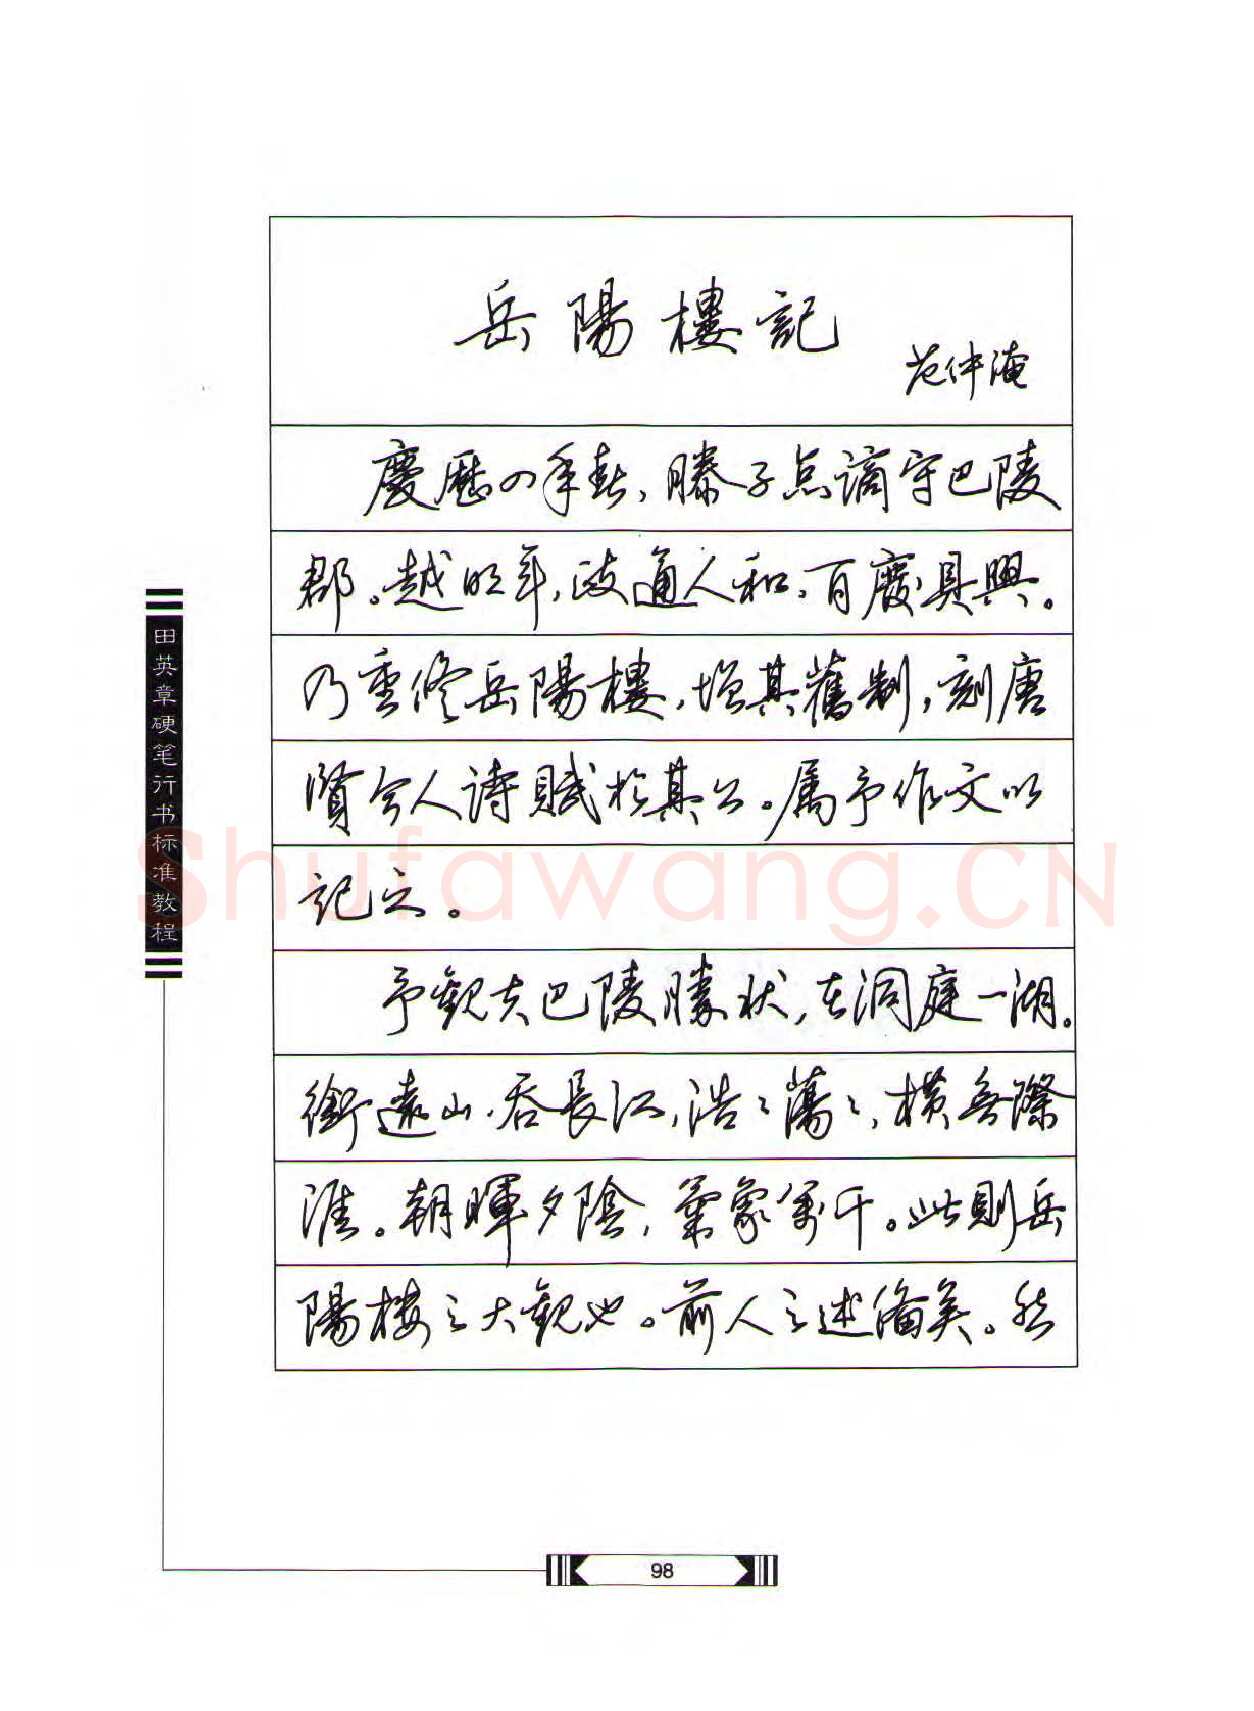 岳陽樓記
范仲淹
慶歷四年春，滕子点謫守巴陵
郡。越明年，政通人和，百廢具興。
乃重修岳陽樓，增其舊制，刻唐
賢今人詩賦於其上。属予作文以
記之。
予觀夫巴陵勝状，在洞庭一湖。
銜遠山，吞長江，浩〻蕩〻，橫無際
涯。朝暉夕陰，氣象萬千。此則岳
陽樓之大觀也。前人之述備矣。然
田英章硬笔行书标准教程
Shufawang.CN
98